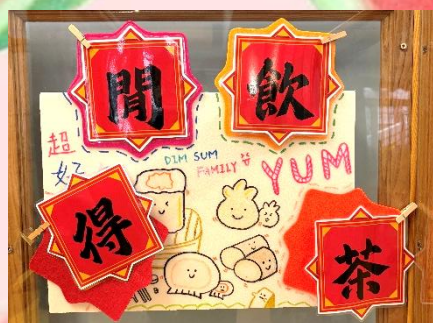 閒 飲
超好
DIM SUM
FAMILY
YUM
得 茶